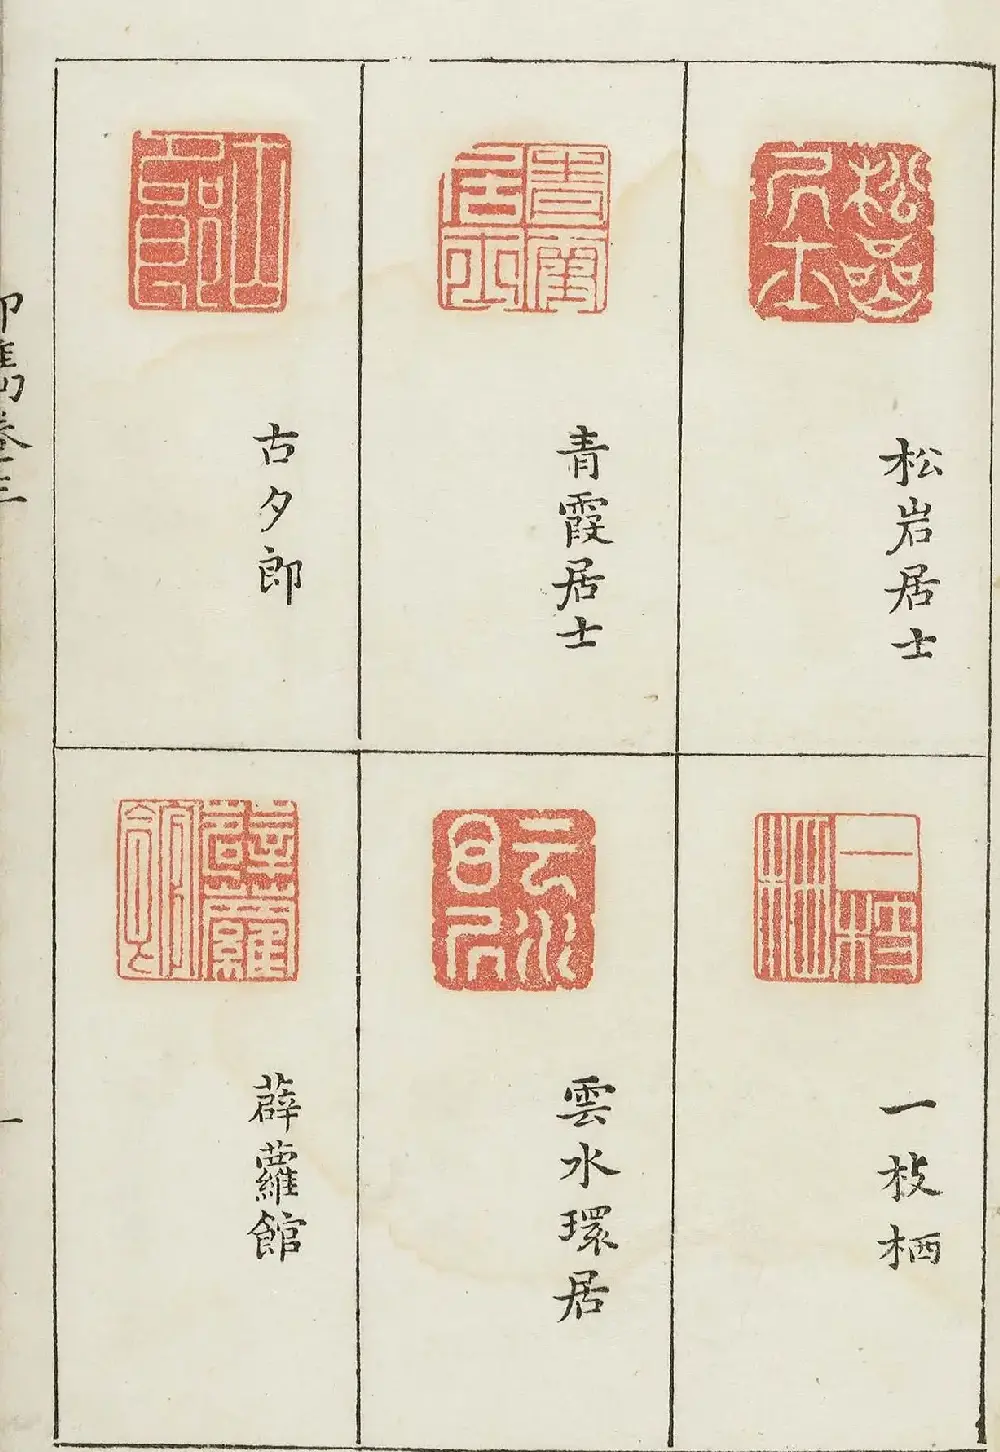 松岩居士
青霞居士
古夕郎
一枝栖
雲水環居
薜蘿館
印雋卷三
一